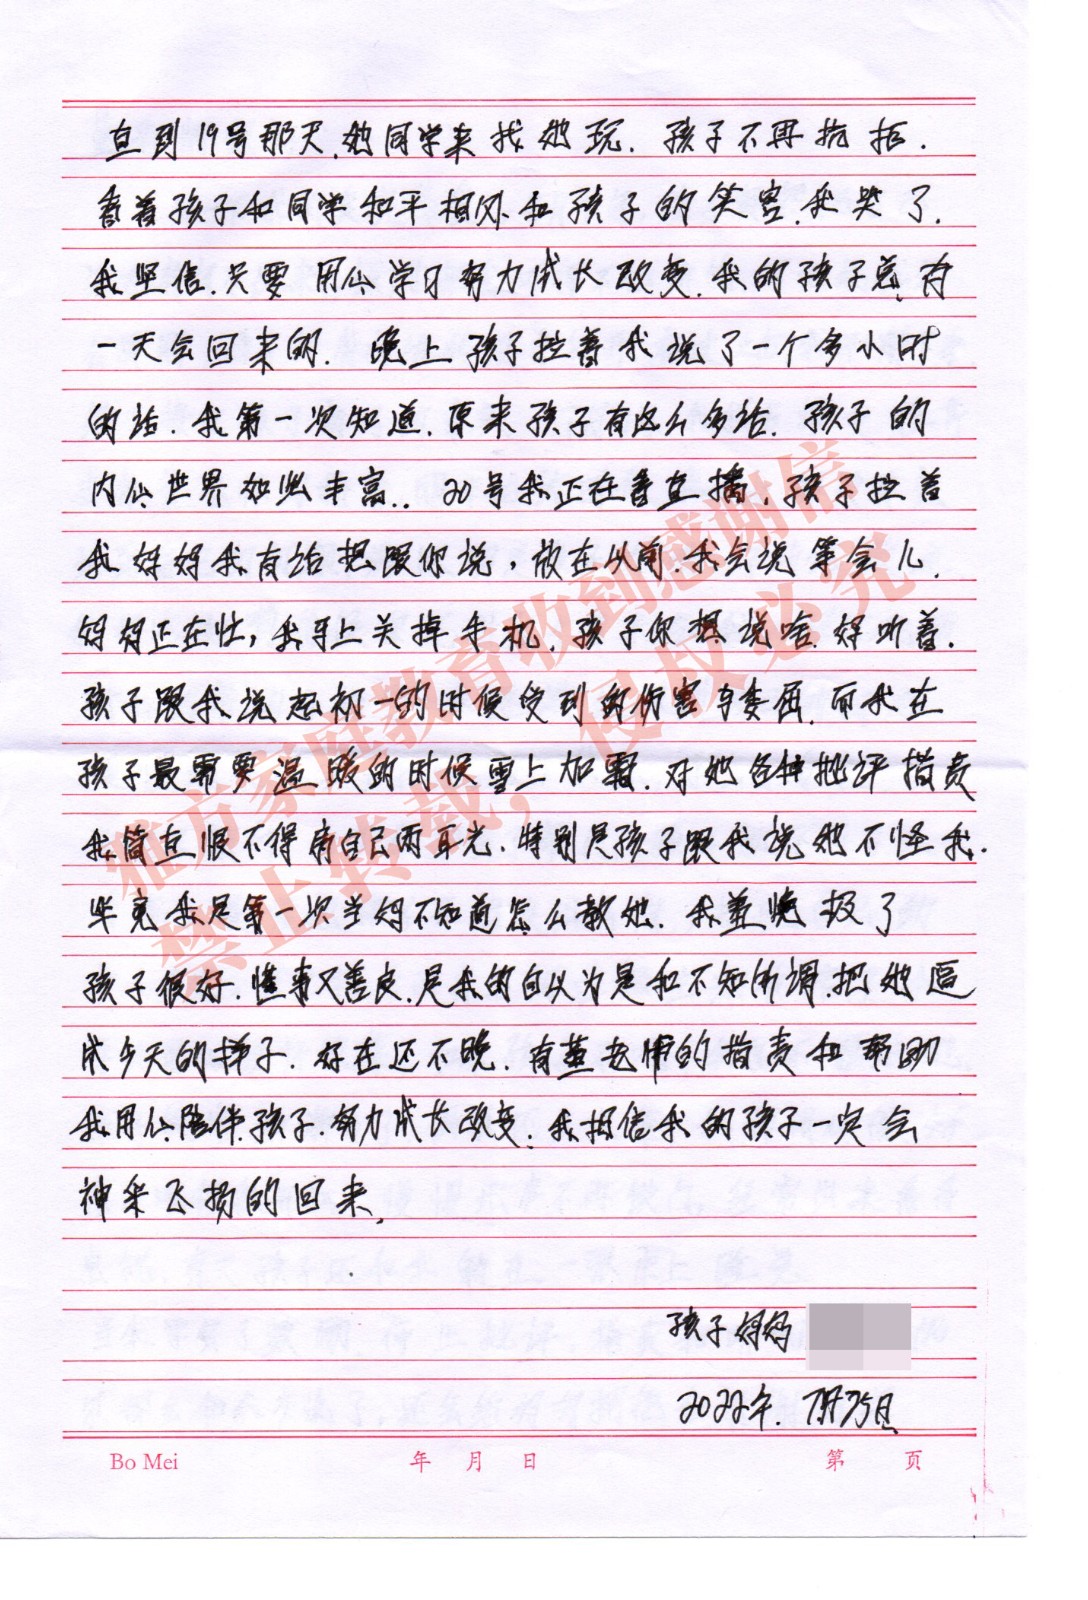 直到19号那天,她同学来找她玩.孩子不再抗拒.
看着孩子和同学和平相处和孩子的笑容.我哭了.
我坚信.只要用心学习努力成长改变.我的孩子总有
一天会回来的.晚上孩子拉着我说了一个多小时
的话.我第一次知道.原来孩子有这么多话.孩子的
内心世界如此丰富..20号我正在看直播.孩子拉着
我好妈我有话想跟你说,放在以前.我会说等会儿.
妈妈正在忙,我马上关掉手机.孩子你想说啥.妈听着.
孩子跟我说起初一的时候受到的伤害与委屈.而我在
孩子最需要温暖的时候雪上加霜.对她各种批评指责
我简直恨不得扇自己两耳光.特别是孩子跟我说她不怪我.
毕竟我是第一次当妈不知道怎么教她.我羞愧极了
孩子很好.懂事又善良.是我的自以为是和不知所谓.把她逼
成今天的样子.好在还不晚.有董老师的指责和帮助
我用心陪伴孩子.努力成长改变.我相信我的孩子一定会
神采飞扬的回来.
孩子妈妈
2022年.7月25日
Bo Mei 年 月 日 第 页
雅方家庭教育收到感谢信
禁止转载,侵权必究